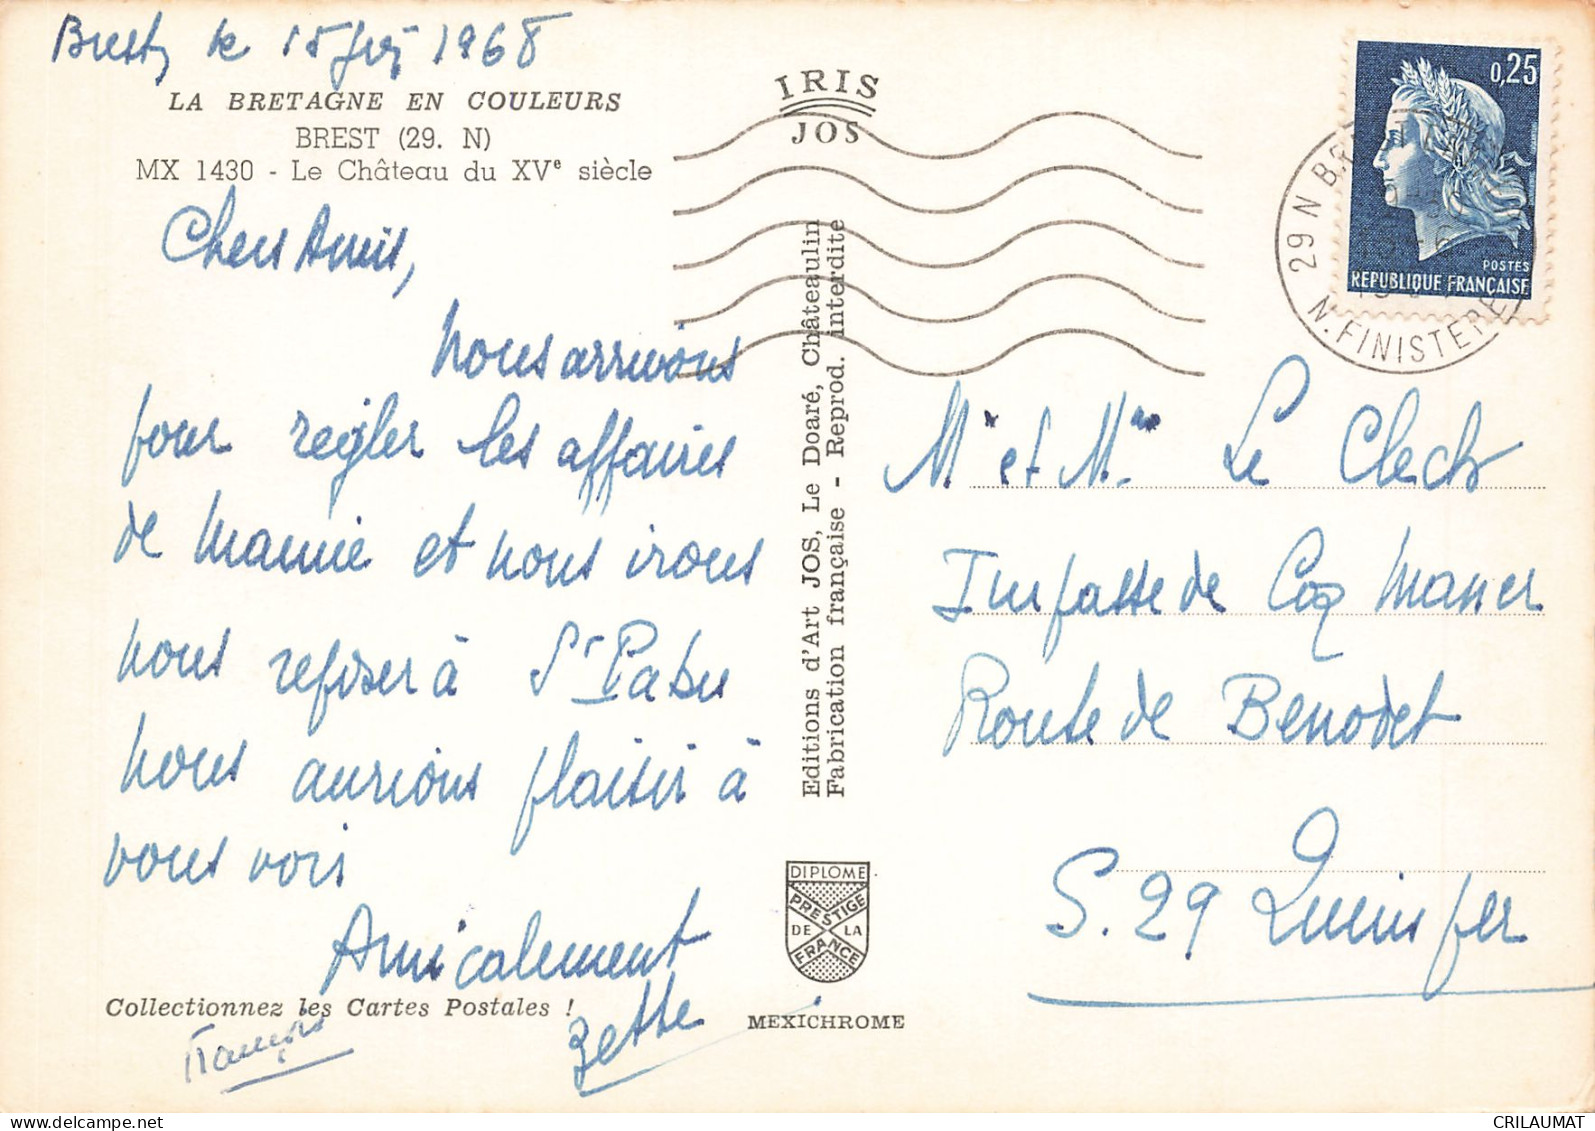 Brest, le 15 Juin 1968
LA BRETAGNE EN COULEURS
BREST (29. N)
MX 1430 - Le Château du XVe siècle
Chers Amis,
Nous arrivons
pour regler les affaires
de Mamie et nous irons
nous reposer à St Pabu
nous aurions plaisir à
vous voir
Amicalement
Zette
François
Collectionnez les Cartes Postales !
IRIS
JOS
Editions d'Art JOS, Le Doaré, Châteaulin
Fabrication française - Reprod. interdite
DIPLOME
PRESTIGE
DE LA
FRANCE
MEXICHROME
0,25
POSTES
REPUBLIQUE FRANÇAISE
29 N
N. FINISTERE
Mr et Mme Le Clech
Impasse de Coq
Route de Benodet
S. 29 Quimper
CRILAUMAT